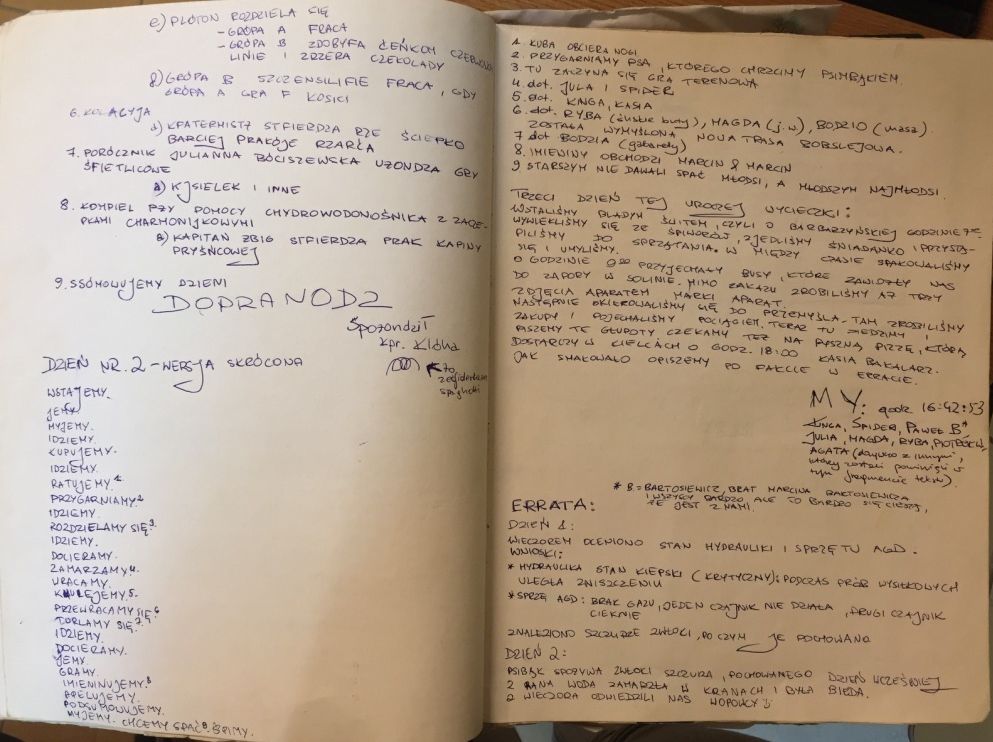 e) PLOTON ROZDZIELA SIĘ
- GRÓPA A FRACA
- GRÓPA B ZDOBYFA ĆEŃKOM CZERWONOM
LINIE I ZRZERA CZEKOLADY
f) GRÓPA B SZCZENSILIFIE FRACA, GDY
GRÓPA A GRA F KOSICI
6. KOLACYJA
a) KFATERNISTŻ STFIERDZA RZE ŚCIEPKO
BARCIEJ PRAKÓJE RZARŁA
7. PORÓCZNIK JULIANNA BOCISZEWSKA UŻONDZA GRY
ŚFIETLICOWE
a) KISIELEK I INNE
8. KOMPIEL PRZY POMOCY CHYDROWODONOŚNIKA Z ZACZE-
PKAMI CHARMONIJKOWYMI
a) KAPITAN ZBIG STFIERDZA PRAK KAPINY
PRYŚNCOWEJ
9. SSÓMOWUJEMY DZIENI
DOPRANODZ
Spożondził
kpr. Klóha
to zegiderkum spaghetti
DZIEŃ NR. 2 - WERSJA SKRÓCONA
WSTAJEMY.
JEMY
MYJEMY.
IDZIEMY.
KUPUJEMY.
IDZIEMY.
RATUJEMY.1
PRZYGARNIAMY2
IDZIEMY.
ROZDZIELAMY SIĘ.3
IDZIEMY.
DOCIERAMY.
ZAMARZAMY4.
WRACAMY.
KULEJEMY.5
PRZEWRACAMY SIĘ.6
TURLAMY SIĘ.7
IDZIEMY.
DOCIERAMY.
JEMY.
GRAMY.
IMIENINUJEMY.8
APELUJEMY.
PODSUMOWUJEMY.
MYJEMY. CHCEMY SPAĆ9. ŚPIMY.
1. KUBA OBCIERA NOGI
2. PRZYGARNIAMY PSA, KTÓREGO CHRZCIMY PSIMBĄKIEM.
3. TU ZACZYNA SIĘ GRA TERENOWA
4. dot. JULA I SPIDER
5. dot. KINGA, KASIA
6. dot. RYBA (śliskie buty), MAGDA (j.w), BODZIO (masa).
ZOSTAŁA WYMYŚLONA NOWA TRASA BOBSLEJOWA.
7 dot BODZIA (gabaryty)
8. IMIENINY OBCHODZI MARCIN & MARCIN
9 STARSZYM NIE DAWALI SPAĆ MŁODSI, A MŁODSZYM NAJMŁODSI.
TRZECI DZIEŃ TEJ UROCZEJ WYCIECZKI:
WSTALIŚMY BLADYM ŚWITEM, CZYLI O BARBARZYŃSKIEJ GODZINIE 7
WYWLEKLIŚMY SIĘ ZE ŚPIWORÓW, ZJEDLIŚMY ŚNIADANKO I PRZYSTĄ-
PILIŚMY DO SPRZĄTANIA. W MIĘDZY CZASIE SPAKOWALIŚMY
SIĘ I UMYLIŚMY
O GODZINIE 9 PRZYJECHAŁY BUSY, KTÓRE ZAWIOZŁY NAS
DO ZAPORY W SOLINIE. MIMO ZAKAZU ZROBILIŚMY AŻ TRZY
ZDJĘCIA APARATEM MARKI APARAT.
NASTĘPNIE SKIEROWALIŚMY SIĘ DO PRZEMYŚLA. TAM ZROBILIŚMY
ZAKUPY I POJECHALIŚMY POCIĄGIEM. TERAZ TU SIEDZIMY I
PISZEMY TE GŁUPOTY CZEKAMY TEŻ NA PYSZNĄ PIZZĘ, KTÓRĄ
DOSTARCZY W KIELCACH O GODZ. 18:00 KASIA BAKALARZ.
JAK SMAKOWAŁO OPISZEMY PO FAKCIE W ERRACIE.
MY: godz 16:42:53
KINGA, SPIDER, PAWEŁ B*
JULIA, MAGDA, RYBA, PIOTRÓW,
AGATA (dayuko z innymi,
którzy zostali pominięci w
tym fragmencie tekstu).
* B. = BARTOSIEWICZ, BRAT MARCINA BARTOSIEWICZA
I WSZYSCY BARDZO, ALE TO BARDZO SIĘ CIESZĄ,
ŻE JEST Z NAMI.
ERRATA:
DZIEŃ 1:
WIECZOREM OCENIONO STAN HYDRAULIKI I SPRZĘTU AGD.
WNIOSKI:
* HYDRAULIKA STAN KIEPSKI (KRYTYCZNY): PODCZAS PRÓB WYSIŁKOWYCH
ULEGŁA ZNISZCZENIU
* SPRZĘT AGD: BRAK GAZU, JEDEN CZAJNIK NIE DZIAŁA, DRUGI CZAJNIK
CIEKNIE
ZNALEZIONO SZCZURZE ZWŁOKI, PO CZYM JE POCHOWANO
DZIEŃ 2:
PSIBĄK SPOŻYWA ZWŁOKI SZCZURA, POCHOWANEGO DZIEŃ WCZEŚNIEJ
Z RANA WODA ZAMARZŁA W KRANACH I BYŁA BIEDA.
Z WIECZORA ODWIEDZILI NAS WOPOWCY :)